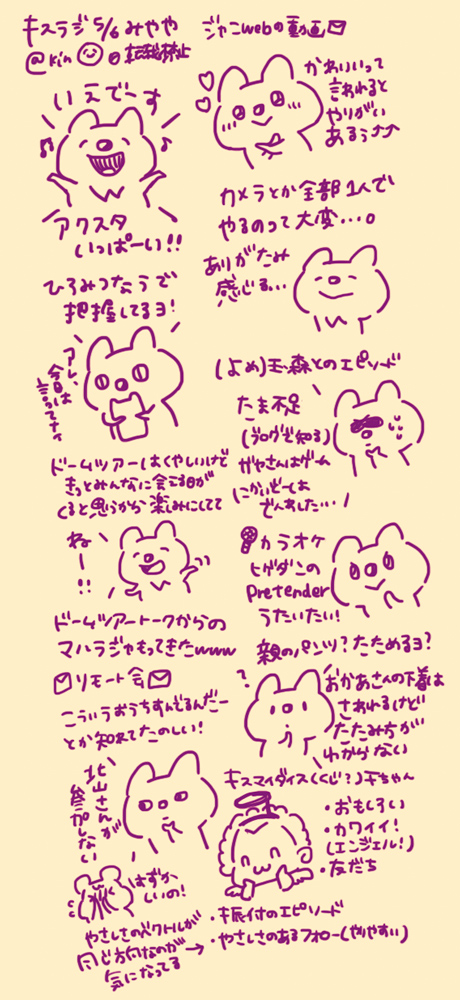 キスラジ 5/6 みやや
@kin の転載禁止
いえでーす
アクスタ
いっぱーい!!
ひろみつなうで
把握してるヨ!
アレ、
今日は
言ってナイ
ドームツアーはくやしいけど
きっとみんなに会える日が
くると思うから楽しみにしてて
ねー!!
ドームツアートークからの
マハラジャもってきたwww
リモート会
こういうおうちすんでるんだー
とか知れてたのしい!
北山さんが
参加しない
はずか
しいの!
やさしさのベクトルが
同じ方向なのが
気になってる
ジャニwebの動画
かわいいって
言われると
やりがい
あるぅ↑↑
カメラとか全部1人で
やるのって大変…。
ありがたみ
感じる…
(よめ)玉森とのエピソード
たま不足
(ブログで知る)
ガヤさんはゲーム
にかいどーしは
でんわした…!
カラオケ
ヒゲダンの
Pretender
うたいたい!
親のパンツ?たためるヨ?
?
おかあさんの下着は
さわれるけど
たたみ方が
わからない
キスマイダイス(くじ?)千ちゃん
・おもしろい
・カワイイ!
(エンジェル!)
・友だち
・振付のエピソード
→・やさしさのあるフォロー(やりやすい)